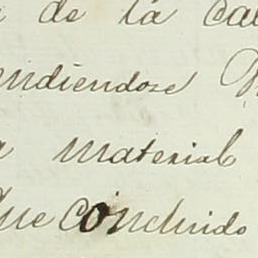 de la
endiendose
material
que concluido